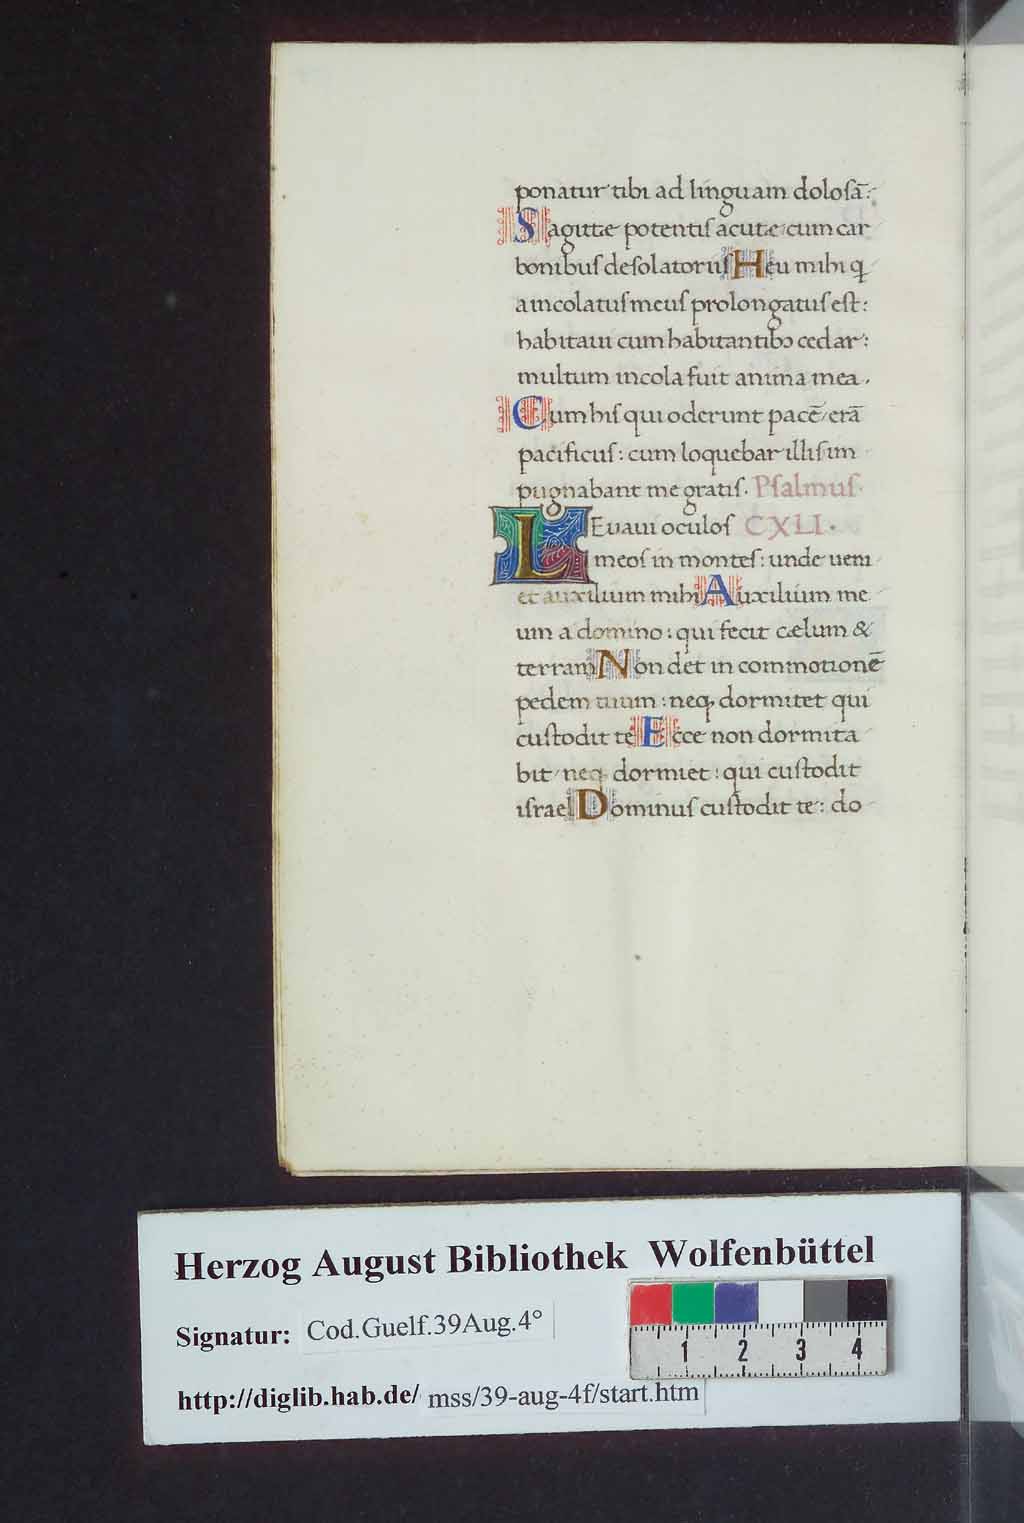 ponatur tibi ad linguam dolosā:
Sagittæ potentis acutæ: cum car
bonibus desolatoriis Heu mihi ꝙ
a incolatus meus prolongatus est:
habitaui cum habitantibꝰ cedar:
multum incola fuit anima mea.
Cum his qui oderunt pacē/ erā
pacificus: cum loquebar illis im
pugnabant me gratis. Psalmus.
LEuaui oculos CXLI.
meos in montes: unde ueni
et auxilium mihi Auxilium me
um a domino: qui fecit cælum &
terram Non det in commotionē
pedem tuum: neq; dormitet qui
custodit te Ecce non dormita
bit/ neq; dormiet: qui custodit
israel Dominus custodit te: do
Herzog August Bibliothek Wolfenbüttel
Signatur: Cod.Guelf.39Aug.4°
http://diglib.hab.de/ mss/39-aug-4f/start.htm
1 2 3 4